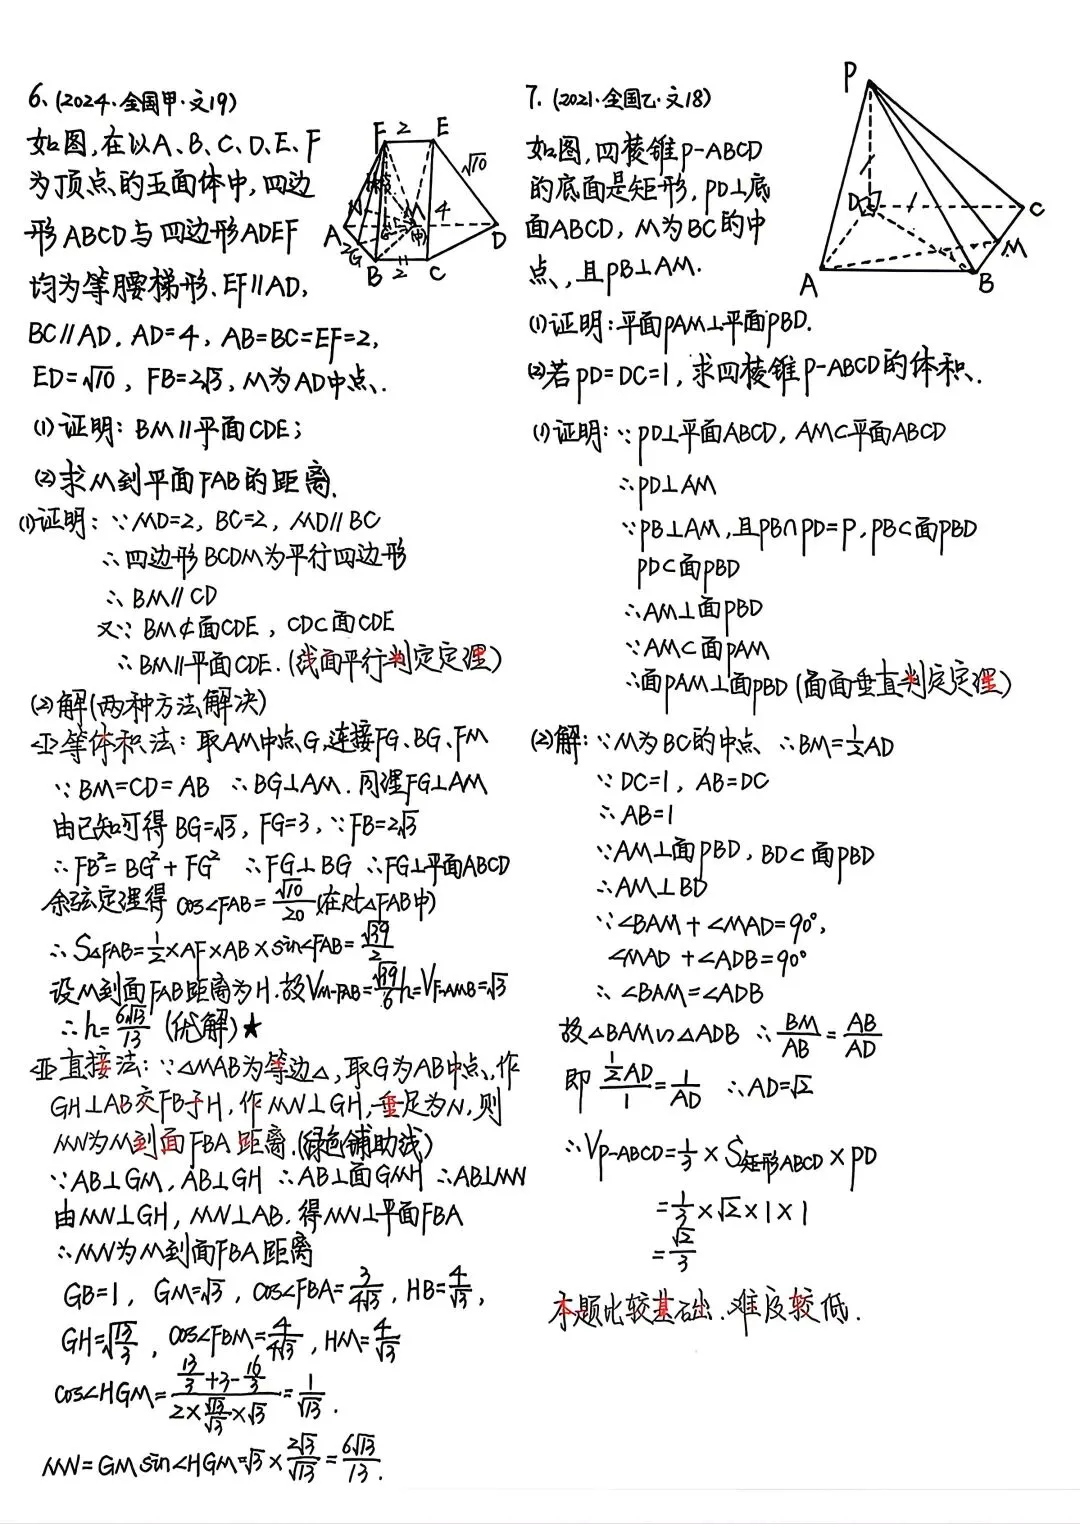 6、(2024·全国甲·文19)
如图,在以A、B、C、D、E、F
为顶点的五面体中,四边
形ABCD与四边形ADEF
均为等腰梯形.EF∥AD,
BC∥AD,AD=4,AB=BC=EF=2,
ED=√10,FB=2√3,M为AD中点.
(1)证明:BM∥平面CDE;
(2)求M到平面FAB的距离.
F 2 E
√10
N
M
4
A
2
G
B 2 C
D
(1)证明:∵MD=2,BC=2,MD∥BC
∴四边形BCDM为平行四边形
∴BM∥CD
又∵BM⊄面CDE,CD⊂面CDE
∴BM∥平面CDE.(线面平行判定定理)
(2)解(两种方法解决)
<I>等体积法:取AM中点G,连接FG、BG、FM
∵BM=CD=AB ∴BG⊥AM.同理FG⊥AM
由已知可得BG=√3,FG=3,∵FB=2√3
∴FB²=BG²+FG² ∴FG⊥BG ∴FG⊥平面ABCD
余弦定理得cos∠FAB=√10/20(在Rt△FAB中)
∴S△FAB=1/2×AF×AB×sin∠FAB=√39/2
设M到面FAB距离为H.故V_M-FAB=√39/6h=V_F-AMB=√3
∴h=6√13/13 (优解)★
<II>直接法:∵△MAB为等边△,取G为AB中点,作
GH⊥AB交FB于H,作MN⊥GH,垂足为N,则
MN为M到面FBA距离.(绿色铺助线)
∵AB⊥GM,AB⊥GH ∴AB⊥面GMH ∴AB⊥MN
由MN⊥GH,MN⊥AB.得MN⊥平面FBA
∴MN为M到面FBA距离
GB=1,GM=√3,cos∠FBA=3/4√3,HB=4/√3,
GH=√13/3,cos∠FBM=4/4√3,HM=4/√3
cos∠HGM=(13/3+3-16/3)/(2×√13/√3×√3)=1/√13.
MN=GMsin∠HGM=√3×2√3/√13=6√13/13.
7.(2021·全国乙·文18)
如图,四棱锥P-ABCD
的底面是矩形,PD⊥底
面ABCD,M为BC的中
点,且PB⊥AM.
(1)证明:平面PAM⊥平面PBD.
(2)若PD=DC=1,求四棱锥P-ABCD的体积.
P
D
C
M
A
B
(1)证明:∵PD⊥平面ABCD,AM⊂平面ABCD
∴PD⊥AM
∵PB⊥AM,且PB∩PD=P,PB⊂面PBD
PD⊂面PBD
∴AM⊥面PBD
∵AM⊂面PAM
∴面PAM⊥面PBD(面面垂直判定定理)
(2)解:∵M为BC的中点 ∴BM=1/2AD
∵DC=1,AB=DC
∴AB=1
∵AM⊥面PBD,BD⊂面PBD
∴AM⊥BD
∵∠BAM+∠MAD=90°,
∠MAD+∠ADB=90°
∴∠BAM=∠ADB
故△BAM∽△ADB ∴BM/AB=AB/AD
即 1/2AD/1=1/AD ∴AD=√2
∴V_P-ABCD=1/3×S矩形ABCD×PD
=1/3×√2×1×1
=√2/3
本题比较基础.难度较低.